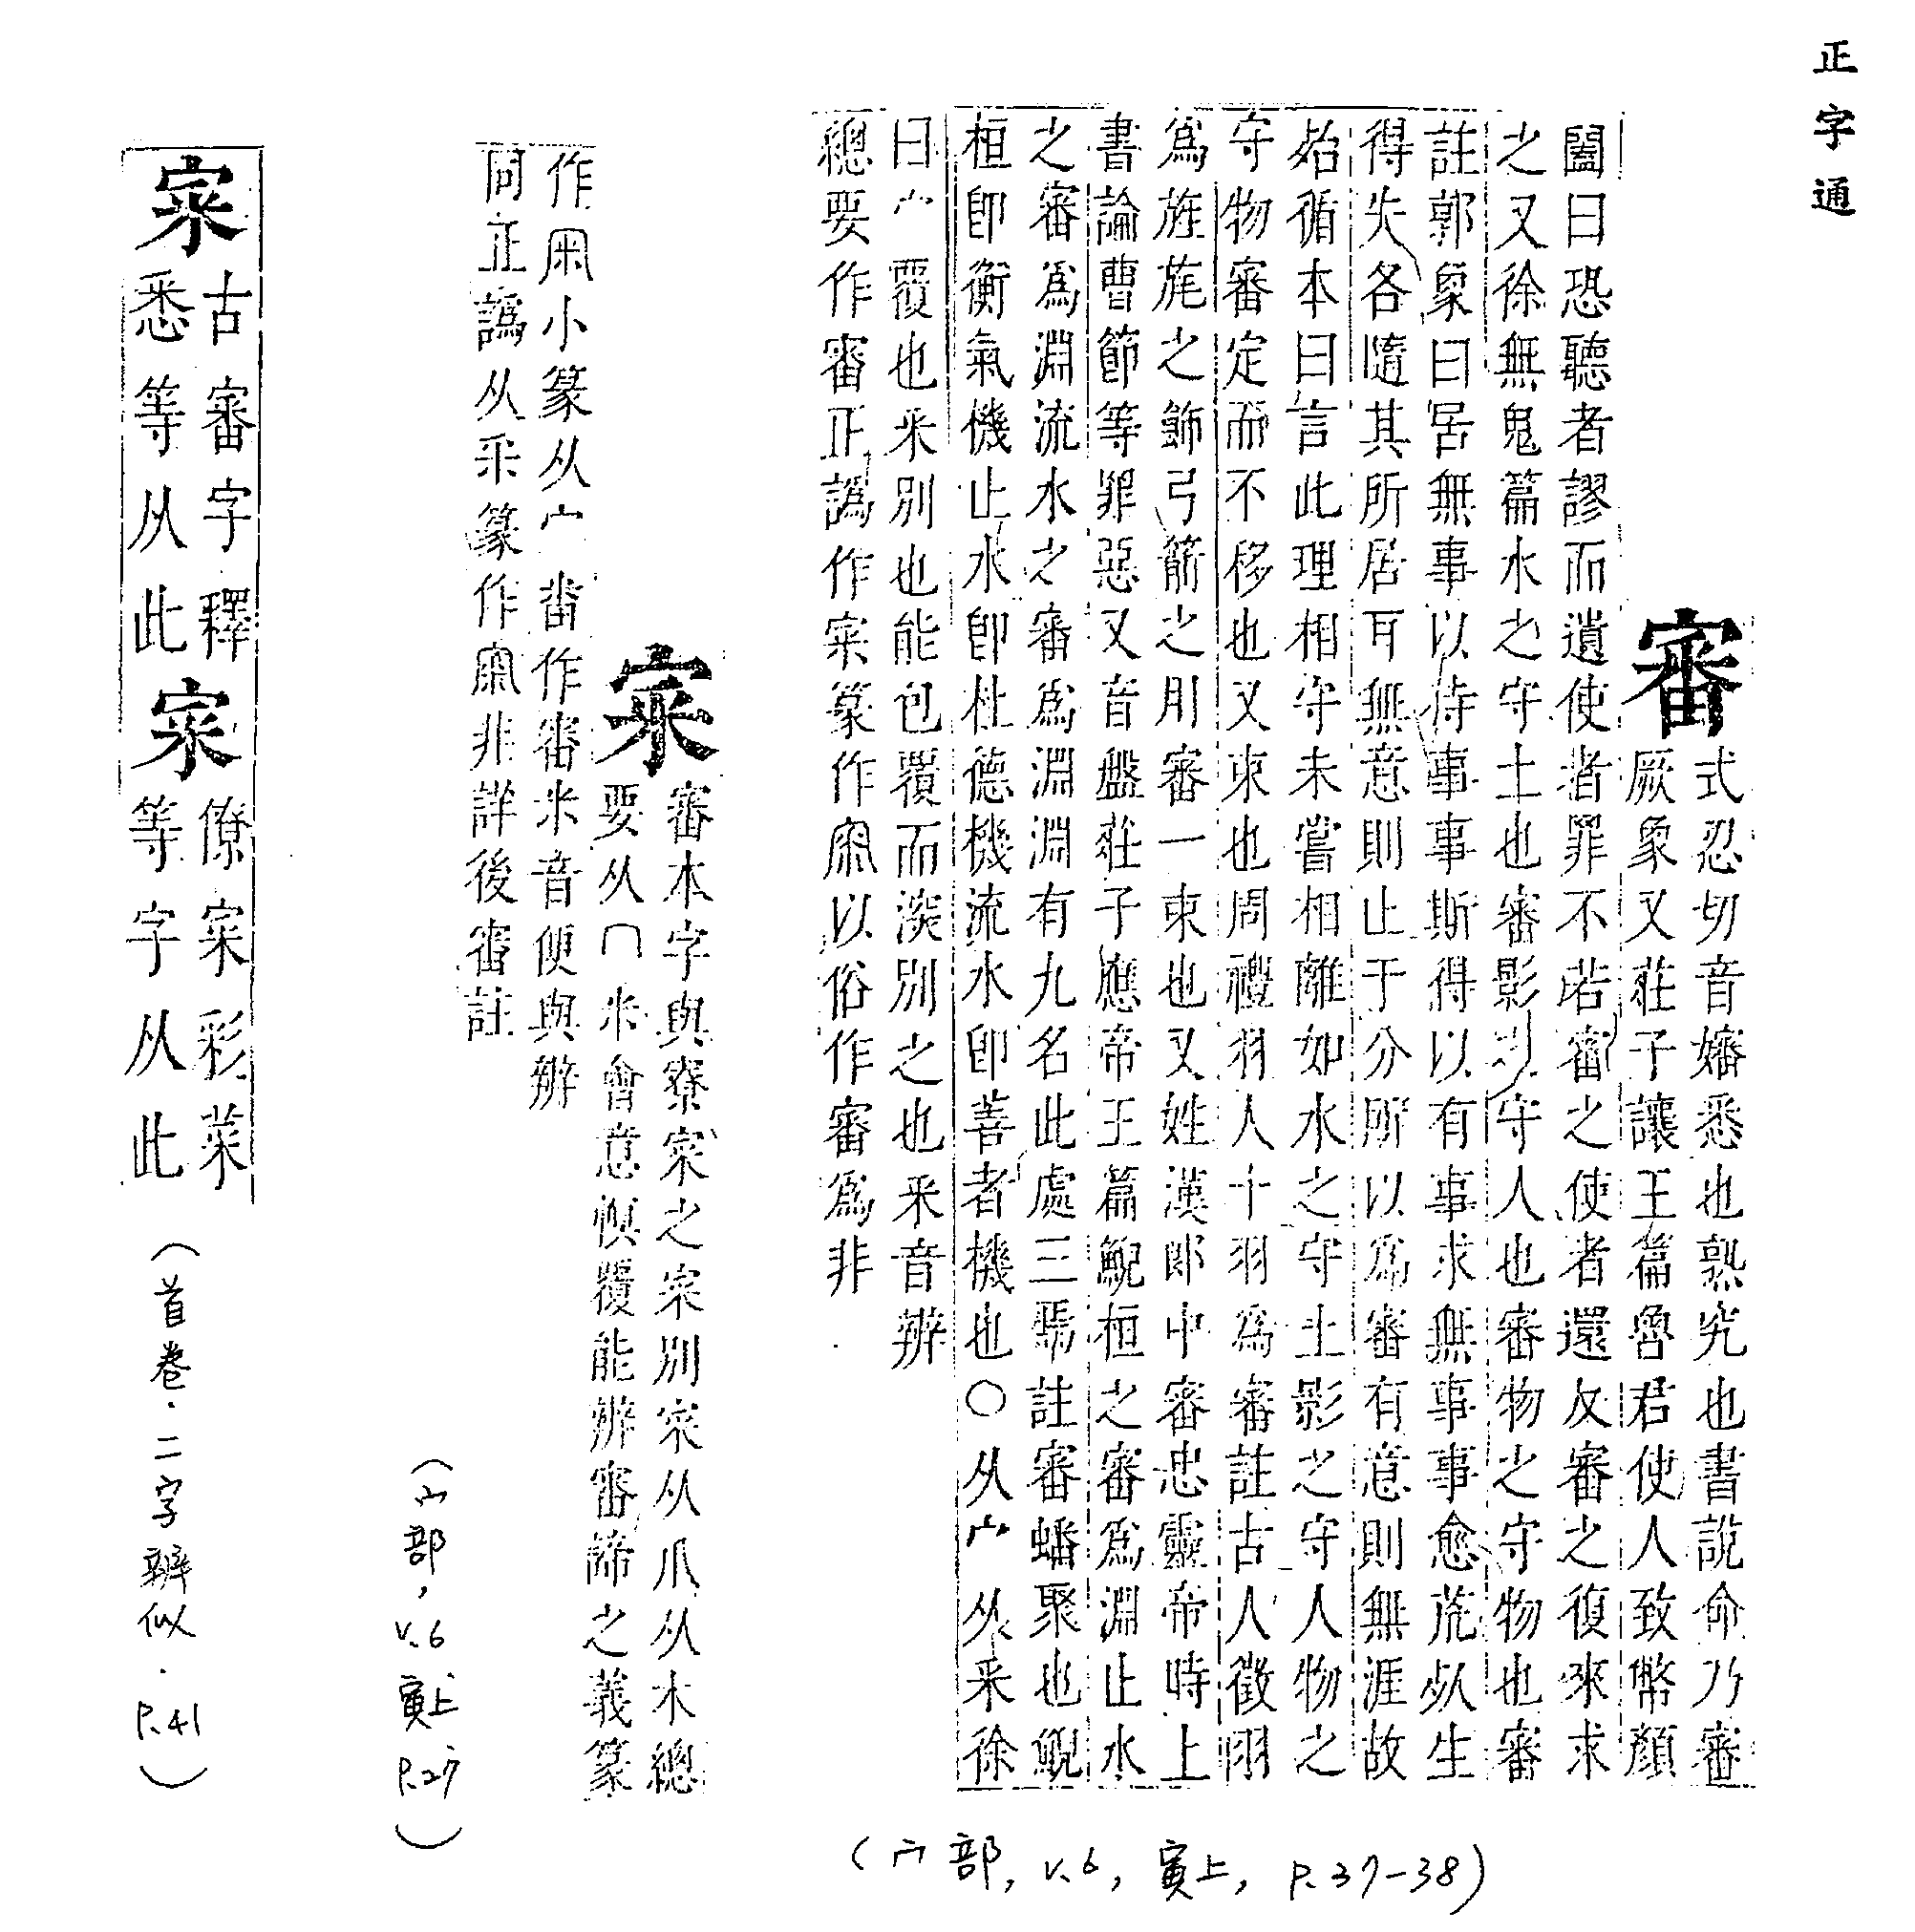 正字通
審
式忍切音嬸悉也熟究也書說命乃審
厥象又莊子讓王篇魯君使人致幣顏
闔曰恐聽者謬而遺使者罪不若審之使者還反審之復來求
之又徐無鬼篇水之守土也審影之守人也審物之守物也審
註郭象曰居無事以待事事斯得以有事求無事事愈荒necessarily生
得失各隨其所居耳無意則止于分所以為審有意則無涯故
殆循本曰言此理相守未嘗相離如水之守土影之守人物之
守物審定而不移也又束也周禮羽人十羽為審註古人徵羽
為旌旄之飾弓箭之用審一束也又姓漢郎中審忠靈帝時上
書論曹節等罪惡又音盤莊子應帝王篇鯢桓之審為淵止水
之審為淵流水之審為淵淵有九名此處三焉註審蟠聚也鯢
桓卽衡氣機止水卽杜德機流水卽善者機也〇从宀从釆徐
曰宀覆也釆別也能包覆而深別之也釆音辨
總要作審正譌作宷篆作𡪢以俗作審為非
宷
審本字與寮寀之寀別寀从爪从木總
要从冂釆會意慎覆能辨審諦之義篆
作𡪢小篆从宀番作審釆音便與辨
同正譌从釆篆作𡪢非詳後審註
宷
古審字釋
悉等从此
寀
僚寀彩菜
等字从此
(首卷．二字辨似．P.41)
(宀部, v.6 寅上 P.27)
(宀部, v.6, 寅上, P.37-38)